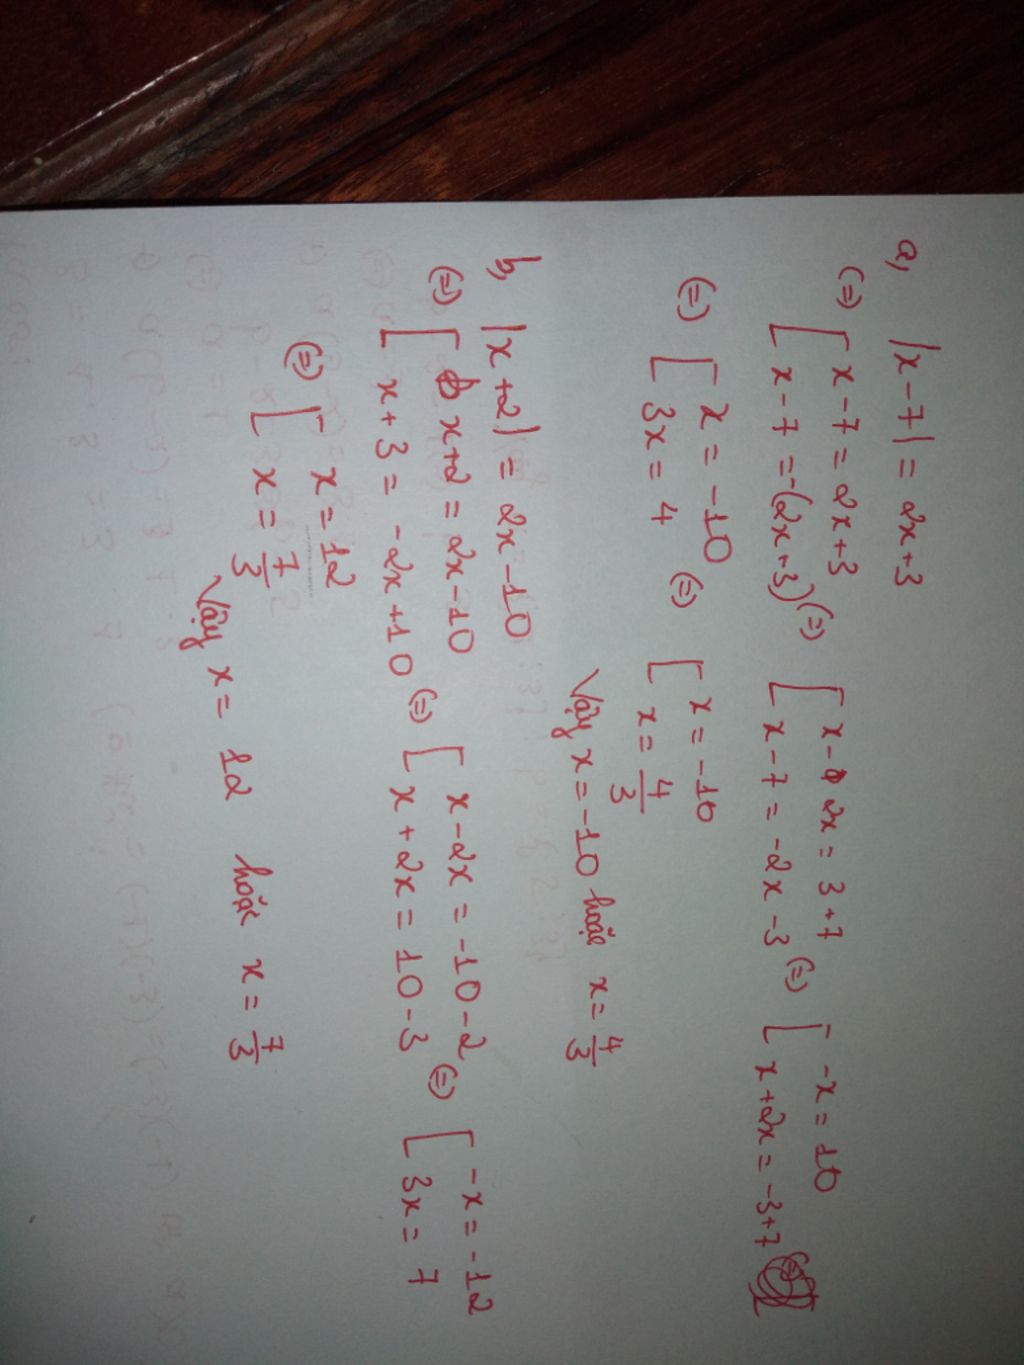 a, |x-7| = 2x+3
(=) [ x-7 = 2x+3
x-7 = -(2x+3) (=) [ x- 2x = 3+7
x-7 = -2x-3 (=) [ -x = 10
x+2x = -3+7
(=) [ x = -10
3x = 4 (=) [ x = -10
x = 4/3
Vậy x = -10 hoặc x = 4/3
b, |x+2| = 2x-10
(=) [ x+2 = 2x-10
x+3 = -2x+10 (=) [ x-2x = -10-2
x+2x = 10-3 (=) [ -x = -12
3x = 7
(=) [ x = 12
x = 7/3
Vậy x = 12 hoặc x = 7/3